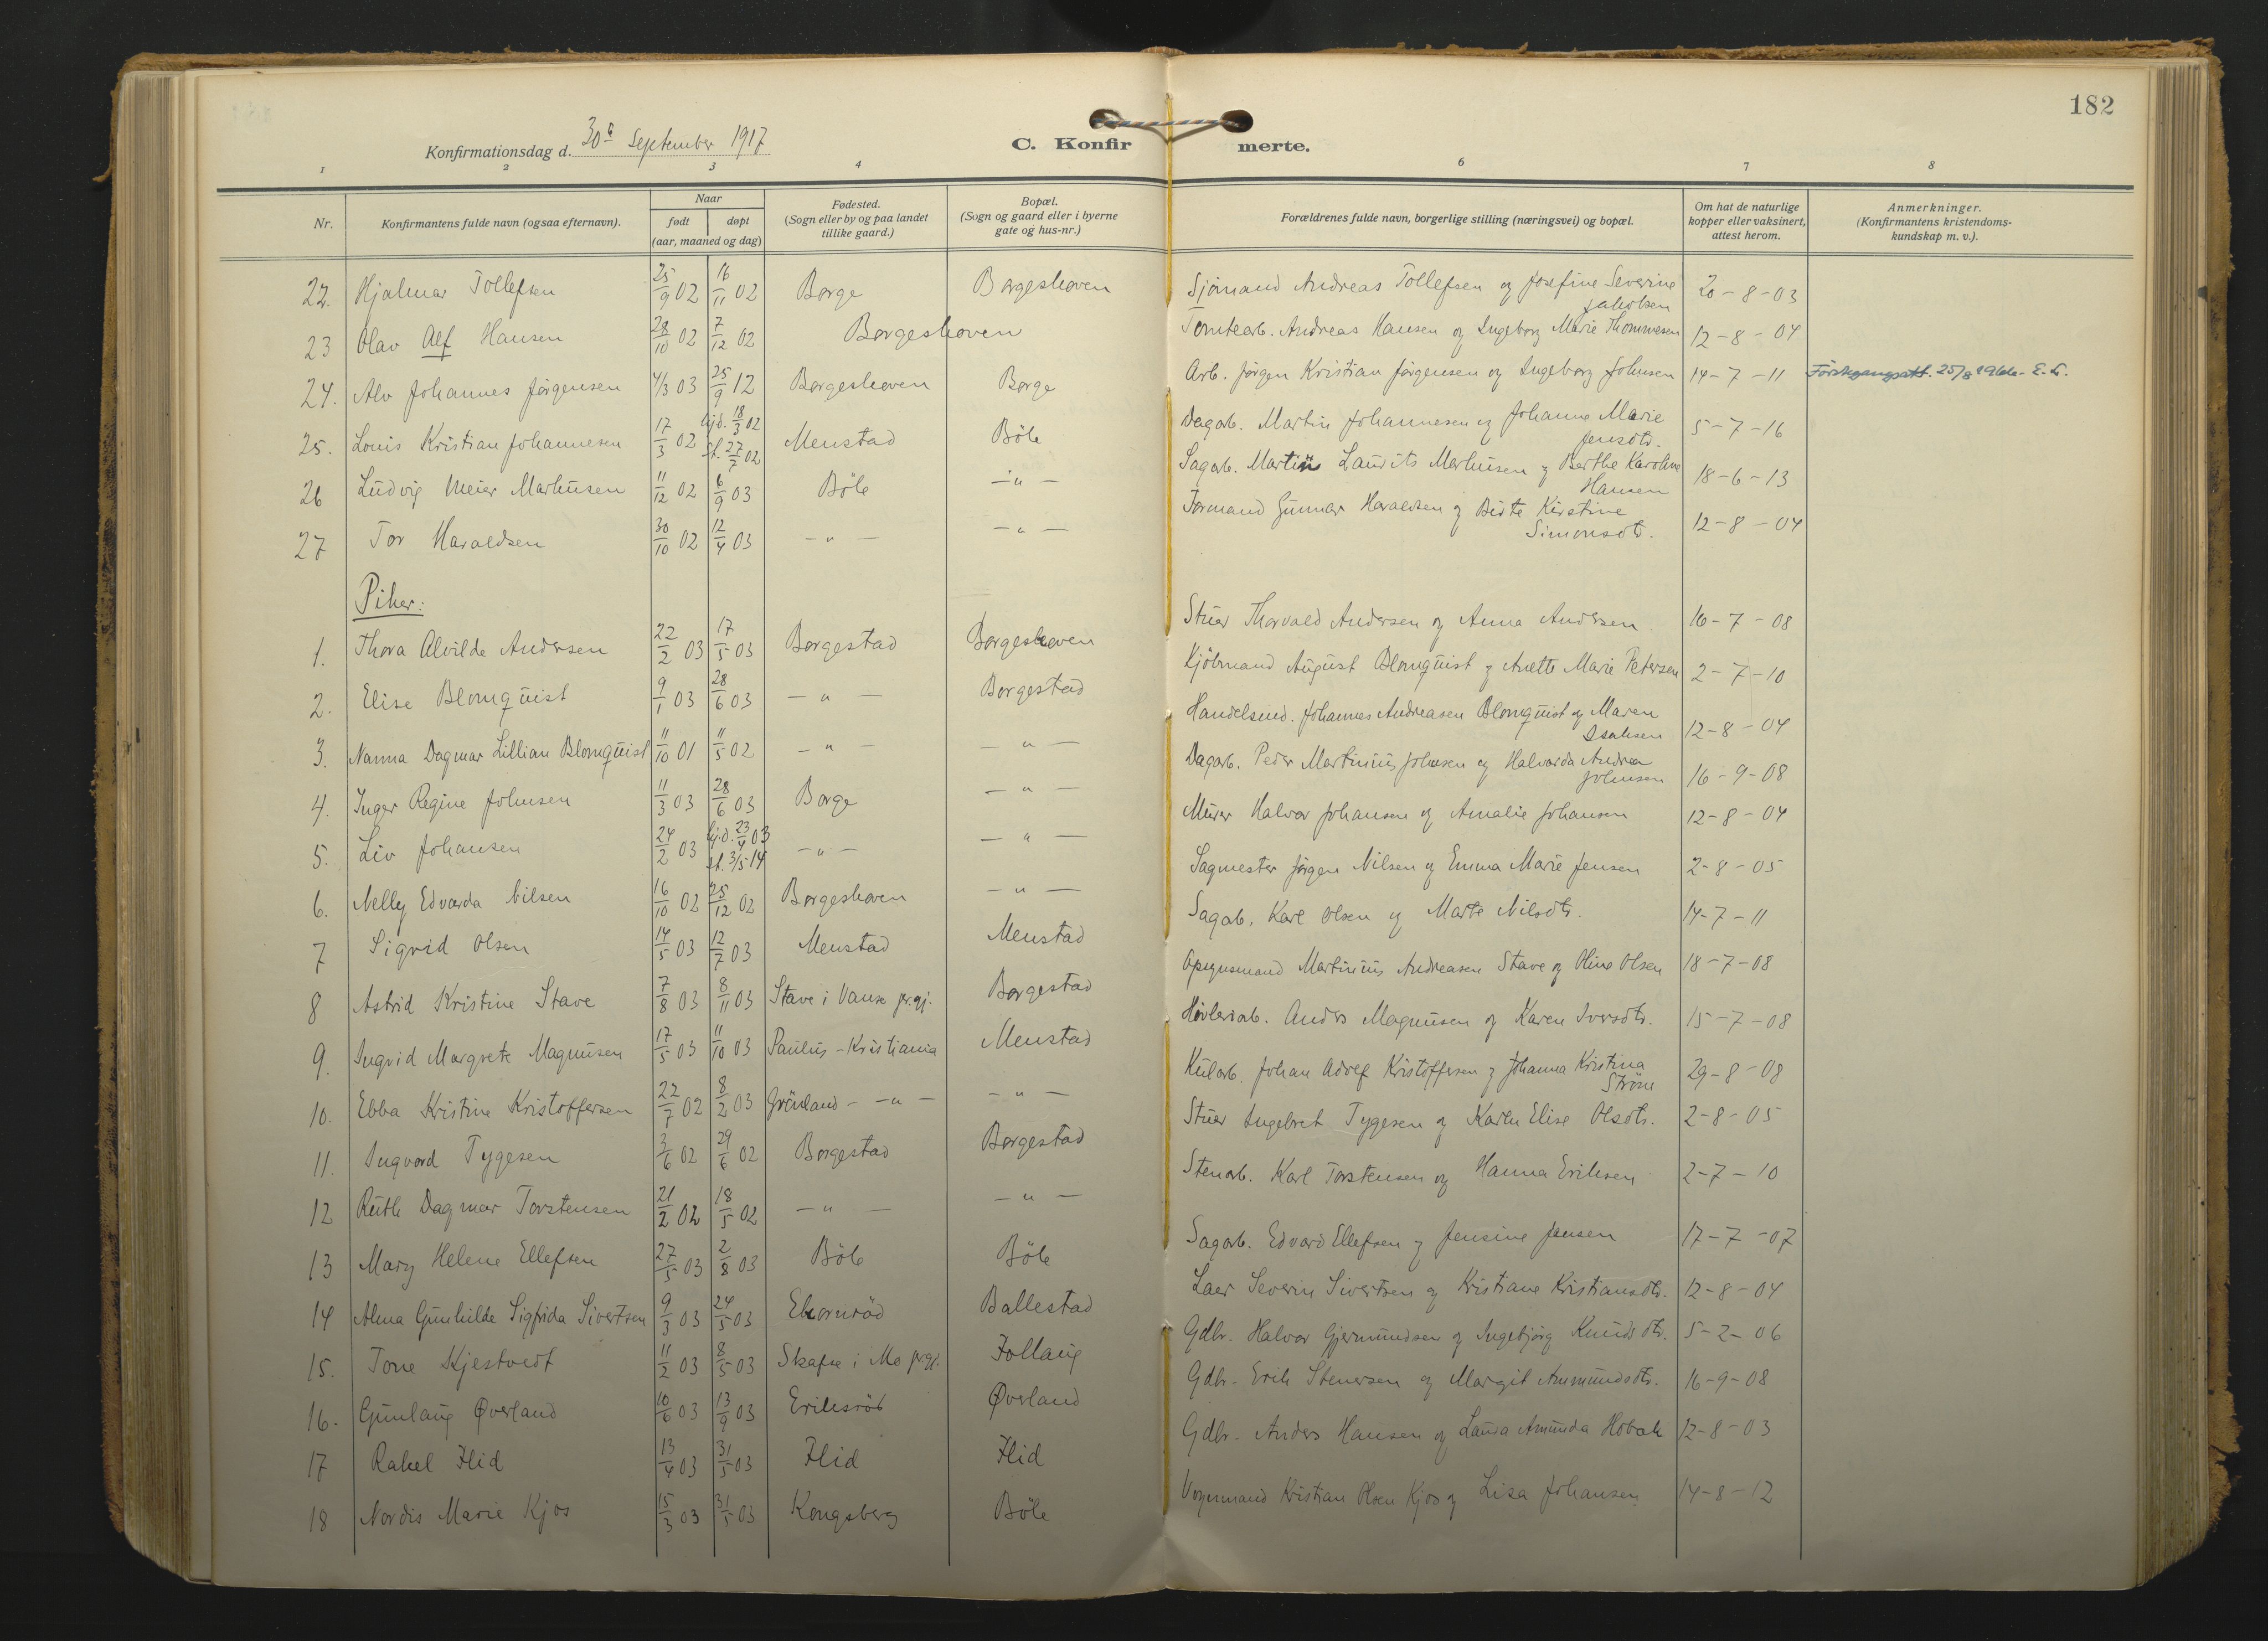 182
Konfirmationsdag d. 30 September 1917
C. Konfirmerte.
1 2 3 4 6 7 8
Nr. Konfirmantens fulde navn (ogsaa efternavn). Naar født døpt (aar, maaned og dag) Fødested. (Sogn eller by og paa landet tillike gaard.) Bopæl. (Sogn og gaard eller i byerne gate og hus-nr.) Forældrenes fulde navn, borgerlige stilling (næringsvei) og bopæl. Om hat de naturlige kopper eller vaksinert, attest herom. Anmerkninger. (Konfirmantens kristendoms-kundskap m. v.).
22. Hjalmar Tollefsen 25/9 02 16/11 02 Borge Borgeshaven Sjømand Andreas Tollefsen og Josefine Severine Jakobsen 20-8-03
23 Olav Alf Hansen 28/10 02 7/12 02 Borgeshaven Tomtearb. Andreas Hansen og Ingeborg Marie Thommesen 12-8-04
24. Alv Johannes Jørgensen 4/3 03 25/9 12 Borgeshaven Borge Arb. Jørgen Kristian Jørgensen og Ingeborg Johnsen 14-7-11 Förstegangsatt. 25/8 1966 - E. L.
25. Louis Kristian Johannesen 17/3 02 hjd. 18/3 02 st. 27/7 02 Menstad Böle Dagarb. Martin Johannesen og Johanne Marie Jensdtr. 5-7-16
26 Ludvig Meier Markusen 11/12 02 6/9 03 Böle -"- Sagarb. Martin Laurits Markusen og Berthe Karoline Hansen 18-6-13
27 Tor Haraldsen 30/10 02 12/4 03 -"- -"- Formand Gunnar Haraldsen og Birte Kirstine Simonsdtr. 12-8-04
Piker:
1. Thora Alvilde Andersen 22/2 03 17/5 03 Borgestad Borgeshaven Stuer Thorvald Andersen og Anna Andersen 16-7-08
2. Elise Blomquist 9/1 03 28/6 03 -"- Borgestad Kjöbmand August Blomquist og Anette Marie Petersen 2-7-10
3. Nanna Dagmar Lillian Blomquist 11/10 01 11/5 02 -"- -"- Handelsmd. Johannes Andreasen Blomquist og Maren Isaksen 12-8-04
4. Inger Regine Johnsen 11/3 03 28/6 03 Borge -"- Dagarb. Peder Martinius Johnsen og Halvarda Andrea Johnsen 16-9-08
5. Liv Johansen 24/2 03 hjd. 23/4 03 st. 3/5 14 -"- -"- Murer Halvor Johansen og Amalie Johansen 12-8-04
6. Nelly Edvarda Nilsen 16/10 02 25/12 02 Borgeshaven -"- Sagmester Jörgen Nilsen og Emma Marie Jensen 2-8-05
7 Sigrid Olsen 14/5 03 12/7 03 Menstad Menstad Sagarb. Karl Olsen og Marte Nilsdtr. 14-7-11
8 Astrid Kristine Stave 7/8 03 8/11 03 Stave i Vanse pr.gj. Borgestad Opsynsmand Martinius Andreasen Stave og Oline Olsen 18-7-08
9. Ingrid Margrete Magnusen 17/5 03 11/10 03 Paulus-Kristiania Menstad Høvleriarb. Anders Magnusen og Karen Iversdtr. 15-7-08
10. Ebba Kristine Kristoffersen 22/7 02 8/2 03 Grönland - -"- -"- Kularb. Johan Adolf Kristoffersen og Johanna Kristina Ström 29-8-08
11. Ingvard Tygesen 3/6 02 29/6 02 Borgestad Borgestad Stuer Ingebret Tygesen og Karen Elise Olsdtr. 2-8-05
12 Ruth Dagmar Torstensen 21/2 02 18/5 02 -"- -"- Stenarb. Karl Torstensen og Hanna Eriksen 2-7-10
13 Mary Helene Ellefsen 27/5 03 2/8 03 Böle Böle Sagarb. Edvard Ellefsen og Jensine Jansen 17-7-07
14 Alma Gunhilde Sigfrida Sivertsen 9/3 03 24/5 03 Ekornrød Ballestad Laer Severin Sivertsen og Kristiane Kristiansdtr. 12-8-04
15. Tone Kjestvedt 11/2 03 8/5 03 Skafse i Mo pr.gj. Follaug Gdbr. Halvor Gjermundsen og Ingebjörg Knudsdtr. 5-2-06
16. Gunlaug Øverland 10/6 03 13/9 03 Eriksröd Øverland Gdbr. Erik Stenersen og Margit Aanundsdtr. 16-9-08
17 Rakel Flid 13/4 03 31/5 03 Flid Flid Gdbr. Anders Hansen og Laura Amunda Hobæk 12-8-03
18 Nordis Marie Kjos 15/3 03 31/5 03 Kongsberg Böle Vognmand Kristian Olsen Kjos og Lisa Johansen 14-8-12